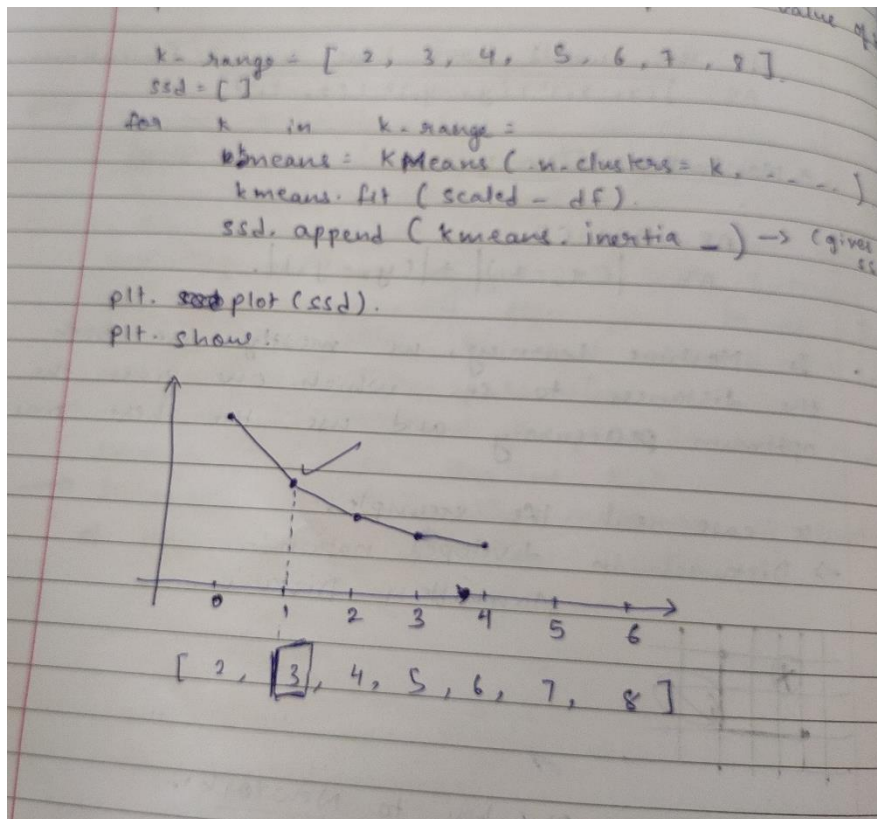 value of
k- range = [ 2, 3, 4, 5, 6, 7, 8 ]
ssd = [ ]
for k in k- range =
kmeans = KMeans ( n-clusters = k, ..... )
kmeans. fit ( scaled - df ).
ssd. append ( kmeans. inertia _ ) → (gives
ss
plt. plot (ssd).
plt. show.
0 1 2 3 4 5 6
[ 2, 3, 4, 5, 6, 7, 8 ]